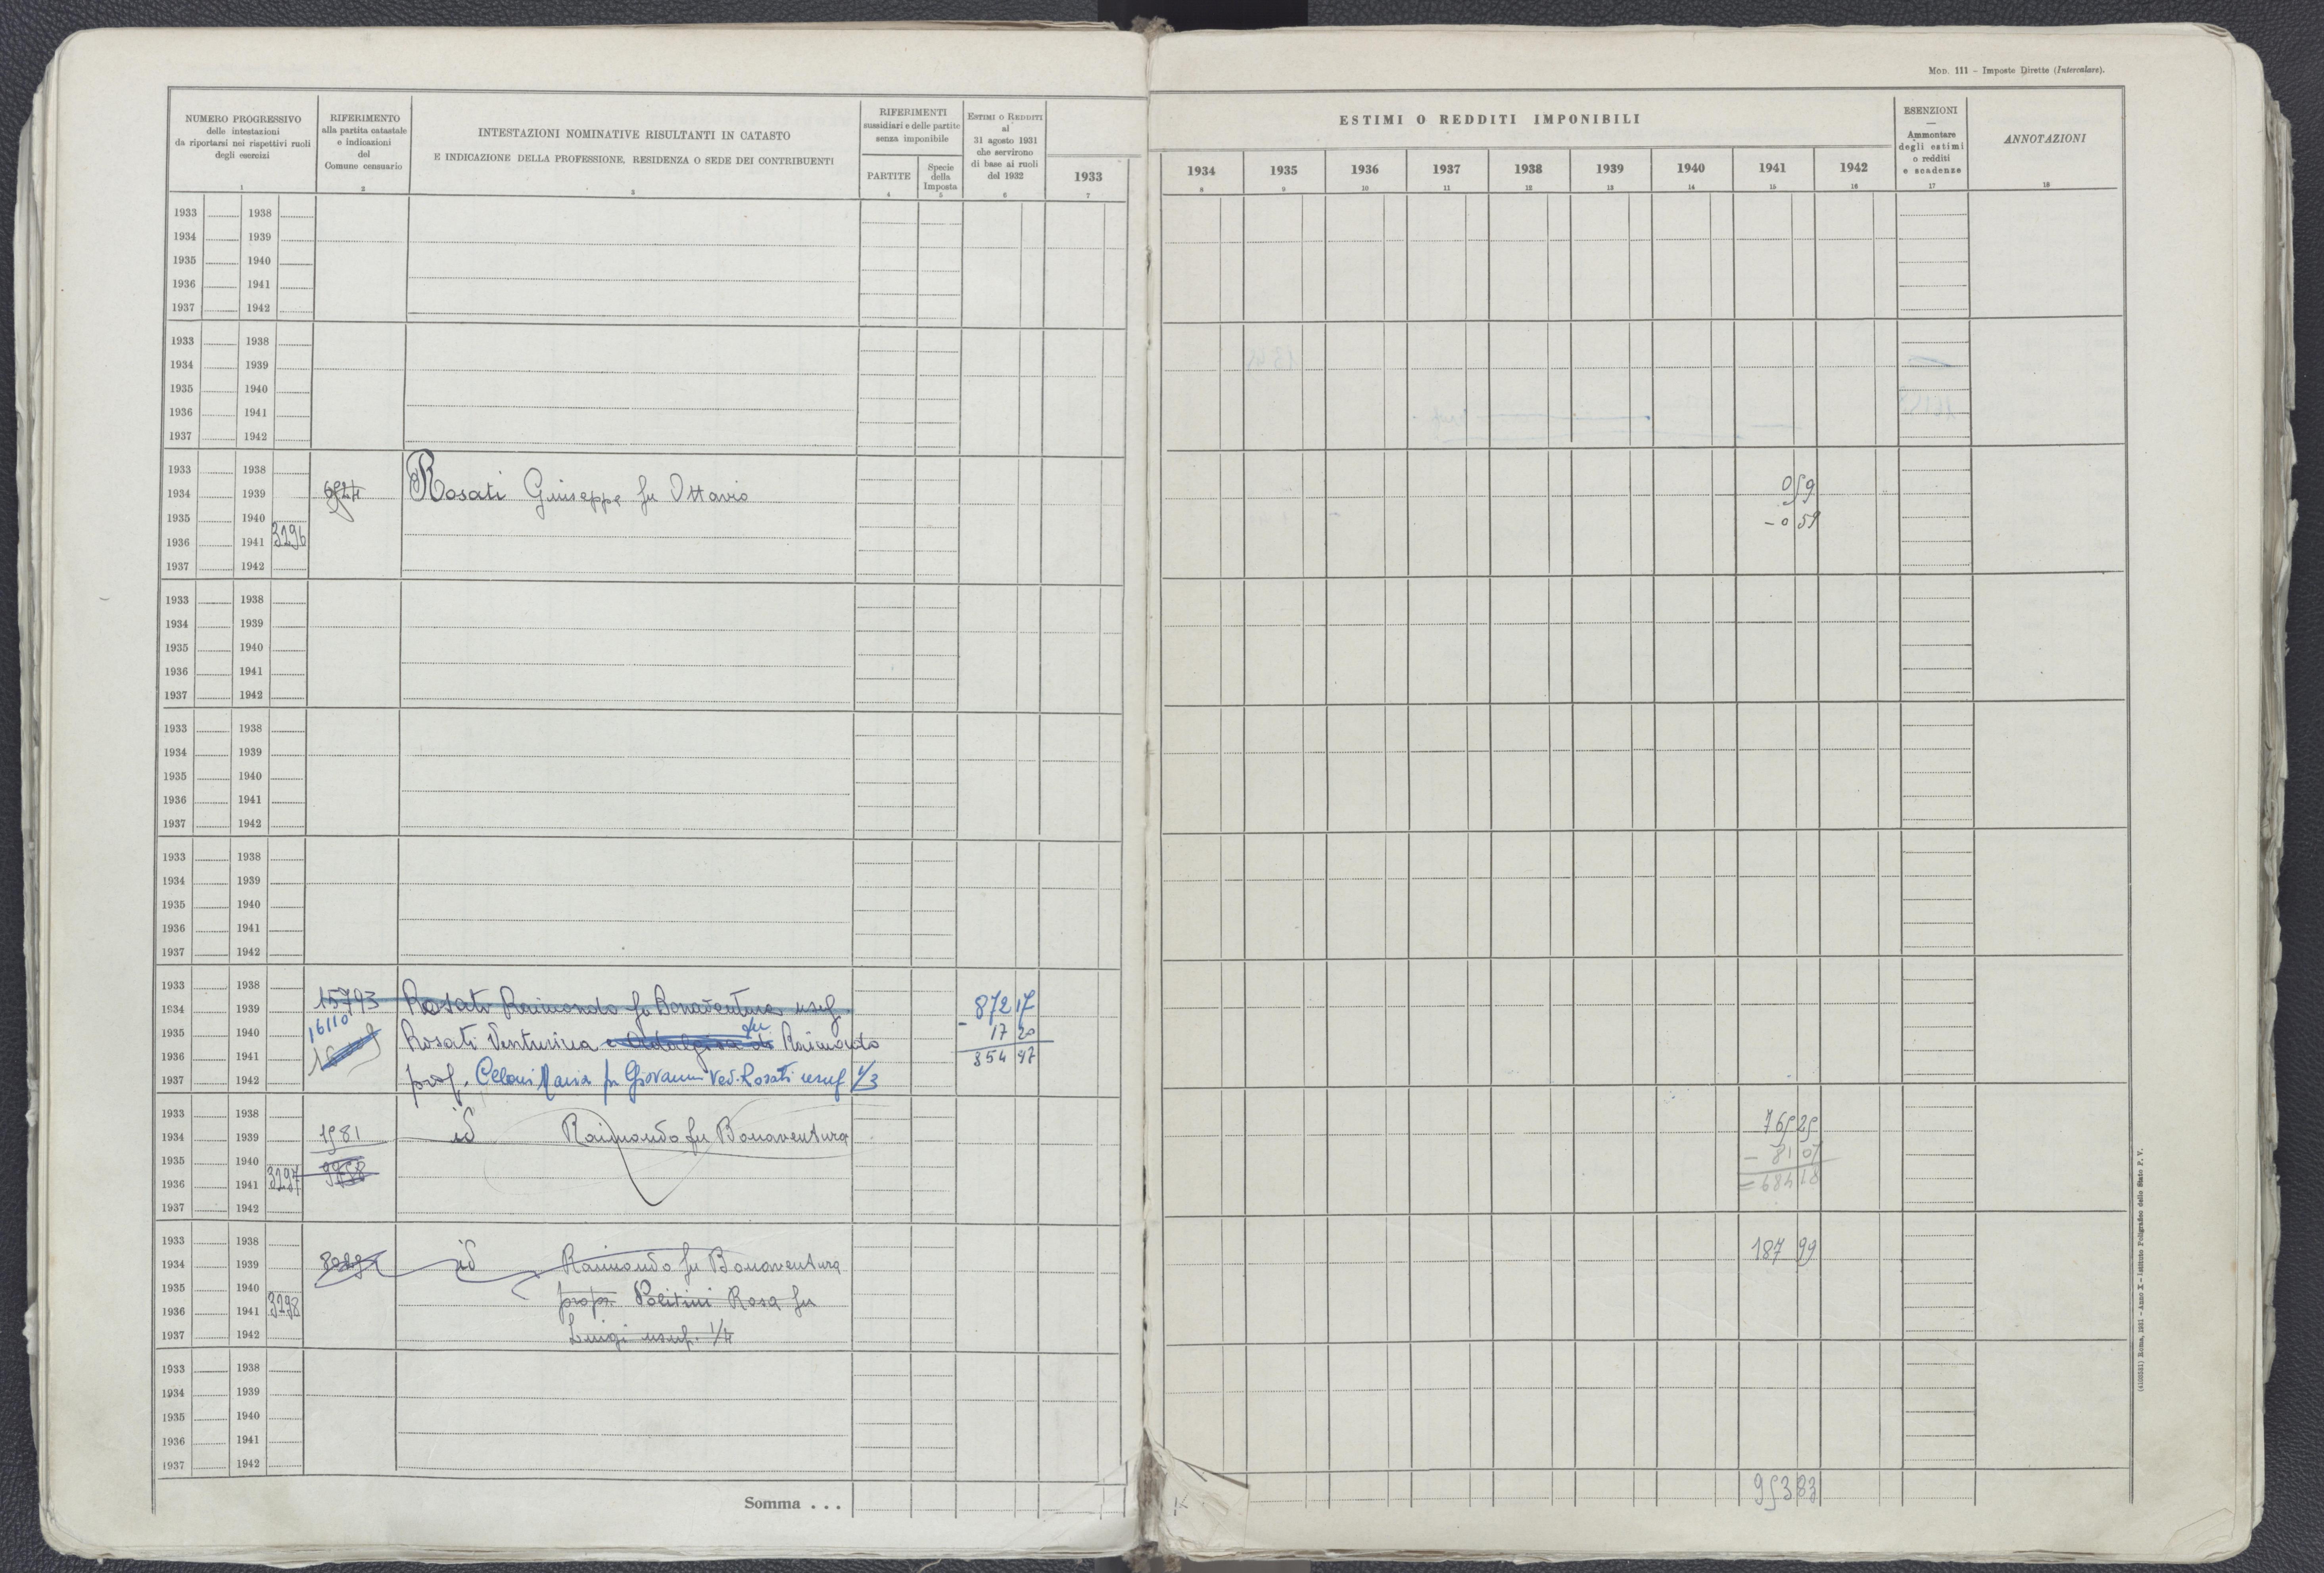 Mod. 111 - Imposte Dirette (Intercalare).
NUMERO PROGRESSIVO
delle intestazioni
da riportarsi nei rispettivi ruoli
degli esercizi
1
RIFERIMENTO
alla partita catastale
e indicazioni
del
Comune censuario
2
INTESTAZIONI NOMINATIVE RISULTANTI IN CATASTO
E INDICAZIONE DELLA PROFESSIONE, RESIDENZA O SEDE DEI CONTRIBUENTI
3
RIFERIMENTI
sussidiari e delle partite
senza imponibile
PARTITE
4
Specie
della
Imposta
5
ESTIMI O REDDITI
al
31 agosto 1931
che servirono
di base ai ruoli
del 1932
6
1933
7
ESTIMI O REDDITI IMPONIBILI
1934 1935 1936 1937 1938 1939 1940 1941 1942
8 9 10 11 12 13 14 15 16
ESENZIONI
—
Ammontare
degli estimi
o redditi
e scadenze
17
ANNOTAZIONI
18
1933 1938
1934 1939
1935 1940
1936 1941
1937 1942
1933 1938
1934 1939
1935 1940
1936 1941
1937 1942
1933 1938
1934 1939 Rosati Giuseppe fu Ottavio 0 59
1935 1940 - 0 59
1936 1941 3296
1937 1942
1933 1938
1934 1939
1935 1940
1936 1941
1937 1942
1933 1938
1934 1939
1935 1940
1936 1941
1937 1942
1933 1938
1934 1939
1935 1940
1936 1941
1937 1942
1933 1938
1934 1939 15793 Rosati Raimondo fu Bonaventura usuf. 872 17
1935 1940 16110 Rosati Venturina e Adalgisa di fu Raimondo - 17 20
1936 1941 854 97
1937 1942 prop. Celloni Maria fu Giovanni Ved. Rosati usuf 1/3
1933 1938 765 25
1934 1939 1581 id Raimondo fu Bonaventura
1935 1940 9958 - 81 07
1936 1941 3297 = 684 18
1937 1942
1933 1938 187 99
1934 1939 id Raimondo fu Bonaventura
1935 1940 propr. Politini Rosa fu
1936 1941 3298
1937 1942 Luigi usuf. 1/4
1933 1938
1934 1939
1935 1940
1936 1941
1937 1942
Somma . . . 953 83
(4103551) Roma, 1931 - Anno X - Istituto Poligrafico dello Stato P. V.